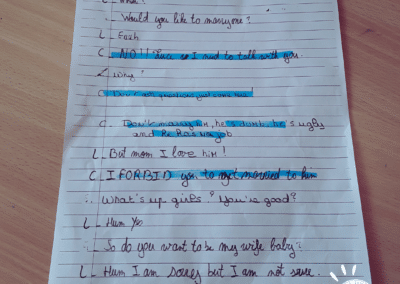 - Would you like to marry me?
L - Euh
C - NO!! Luca so I need to talk with you.
L - Why?
C - Don't ask questions just come here
C - Don't marry him, he's dumb, he's ugly
and he has no job
L - But mom I love him!
C - I FORBID you to get married to him
- What's up girls? You're good?
L - Hum Yes
- So do you want to be my wife baby?
L - Hum I am sorry but I am not sure.